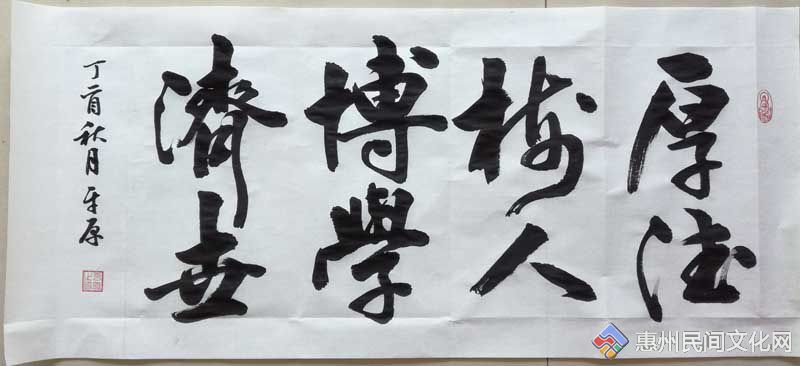 厚德
樹人
博學
濟世
丁酉秋月平原
惠州民间文化网